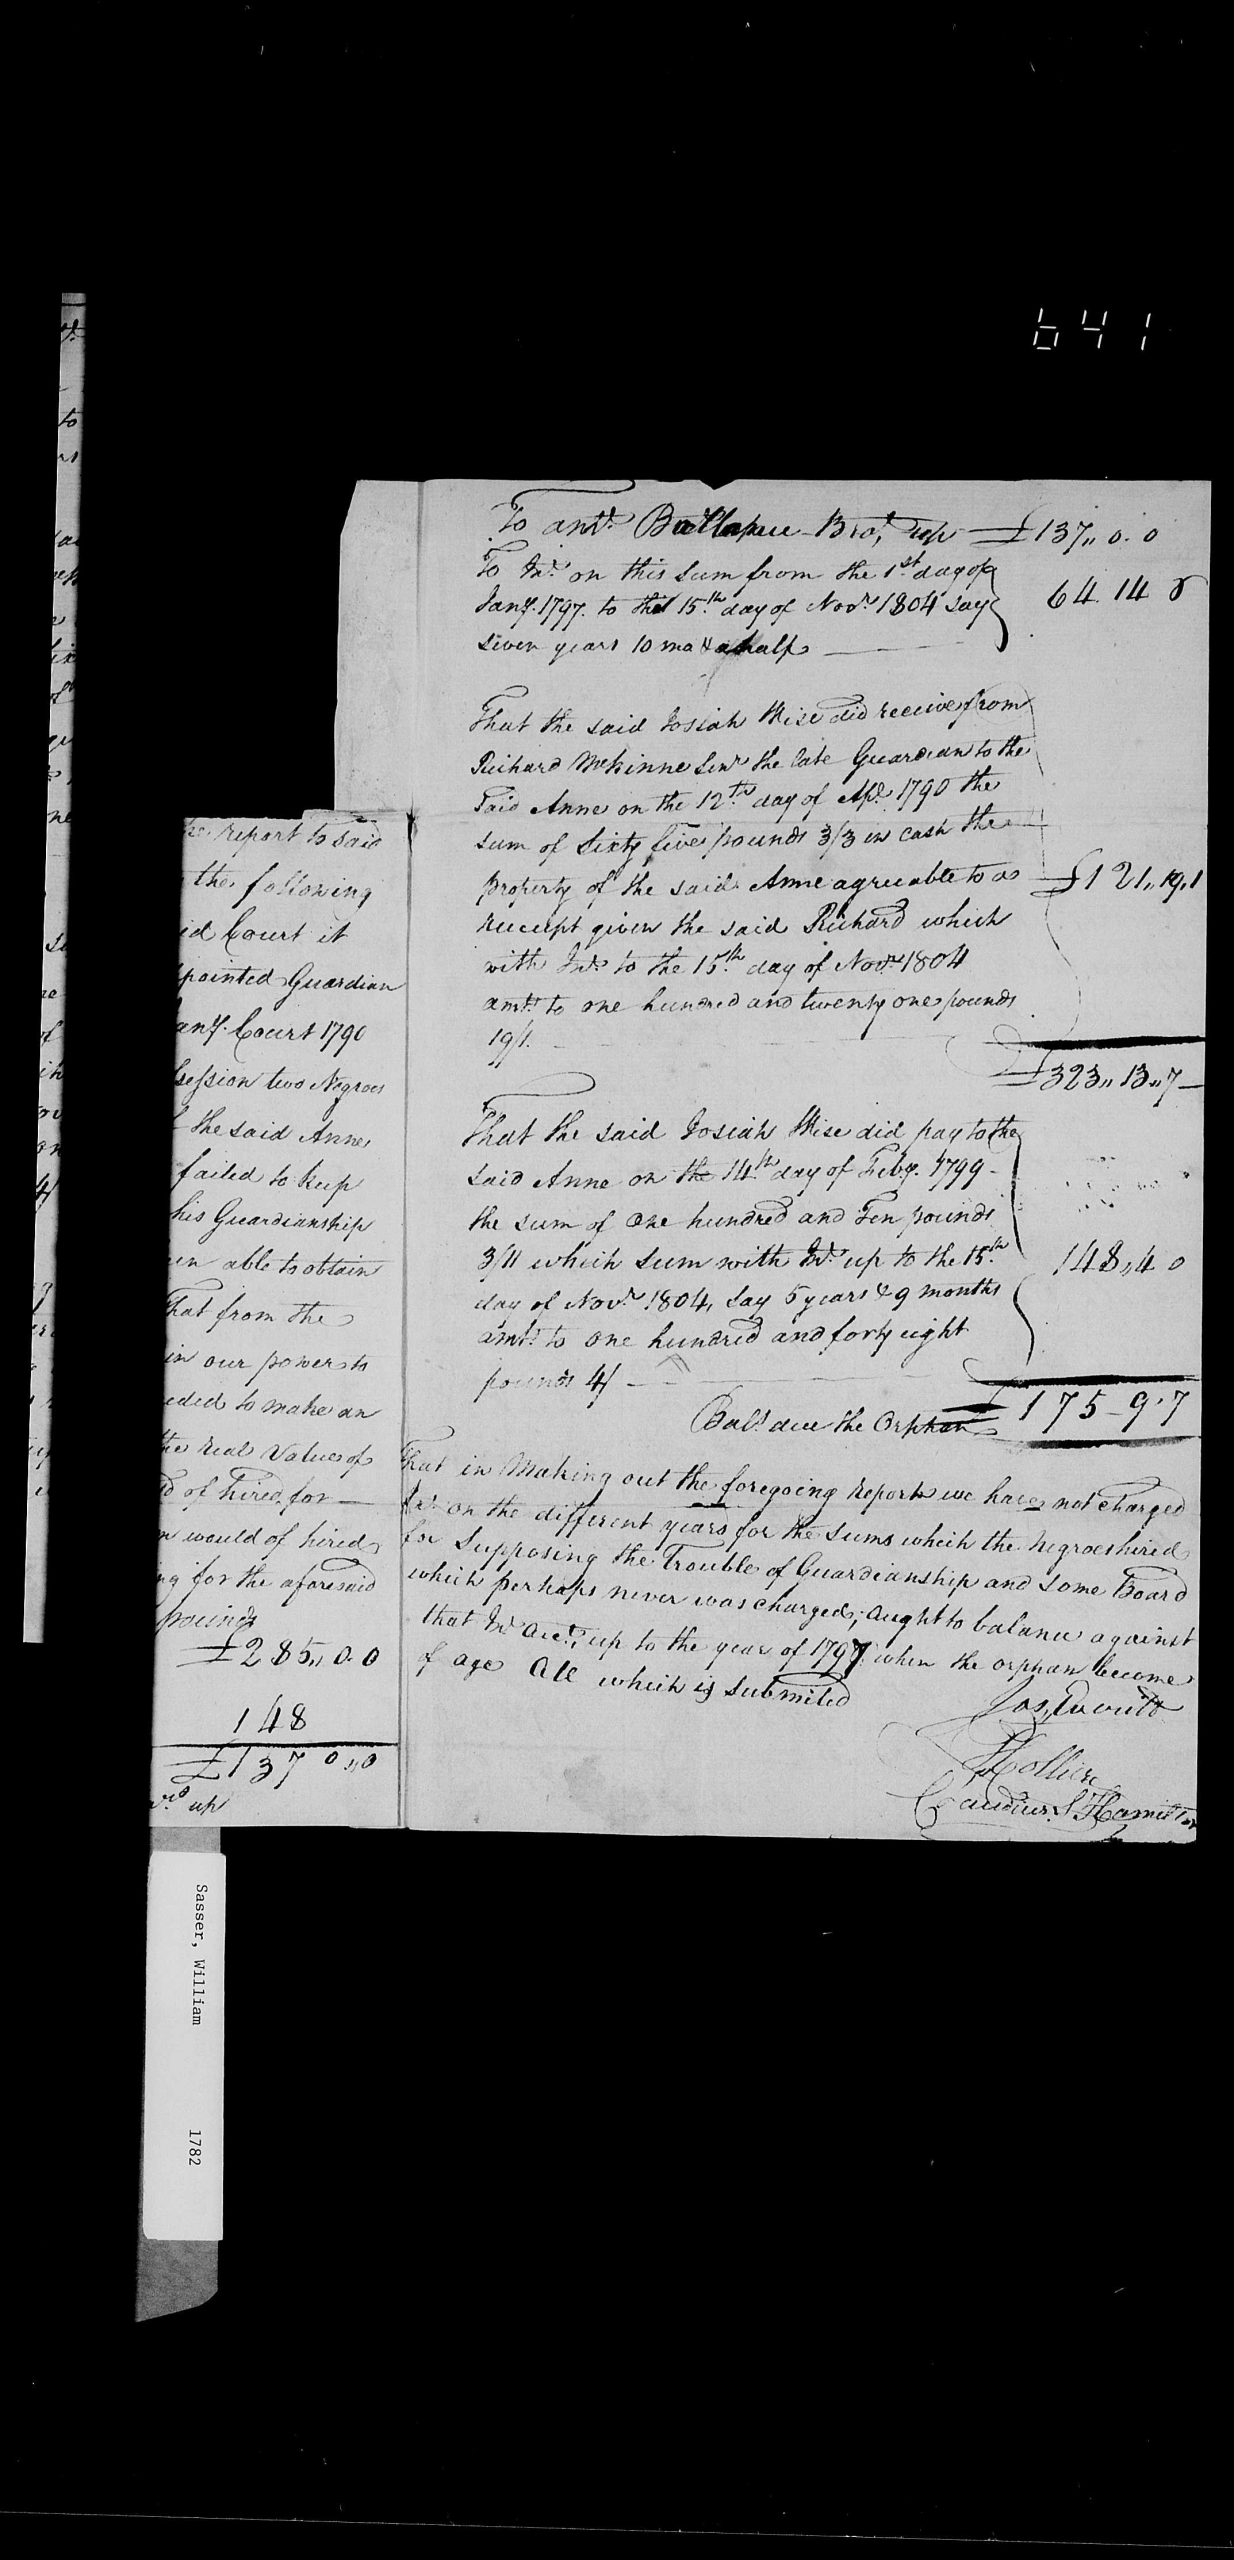 641
To amt. Ballance Bro.t up £137,, 0. 0
To Int. on this sum from the 1st. day of
Jany. 1797. to the 15.th day of Novr. 1804 say
seven years 10 mo & a half
64. 14 8
That the said Josiah Wise did receive from
Richard McKinne Senr. the late Guardian to the
said Anne on the 12.th day of Apl. 1790 the
sum of Sixty five pounds 3/3 in cash the
property of the said Anne agreeable to a
receipt given the said Richard which
with Int. to the 15.th day of Novr. 1804
amt. to one hundred and twenty one pounds
19/1.
£121,, 19,, 1
£323,, 13,, 7
That the said Josiah Wise did pay to the
said Anne on the 14.th day of Feby. 1799
the sum of One hundred and Ten pounds
3/11 which sum with Int. up to the 15.th
day of Novr. 1804, say 5 years & 9 months
amt. to one hundred and forty eight
pounds 4/
148,, 4 0
Bal. due the Orphan £175-9.7
That in Making out the foregoing report we have not charged
Int. on the different years for the sums which the negroes hired
for Supposing the Trouble of Guardianship and some Board
which perhaps never was charged; aught to balance against
that Int. Acct. up to the year of 1797 when the orphan become
of age All which is submited
Jos. Everitt
Hollier
Claudius S Hamilton
report to said
the following
Court it
pointed Guardian
any. Court 1790
session two Negroes
the said Anne
failed to keep
his Guardianship
able to obtain
that from the
in our power to
eded to make an
the real Value of
of hired for
would of hired
for the aforesaid
pounds
£285,, 0. 0
148
£137 0,, 0
up
to
Sasser, William 1782